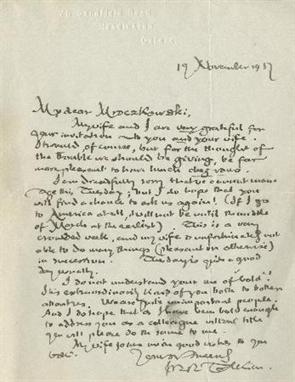 Headington
Oxford.
19 November 1957
My dear Mroczkowski,
My wife and I are very grateful for
your invitation to you and your wife.
It would, of course, but for the thought of
the trouble we should be giving, be far
more pleasant to have lunch chez vous.
I am dreadfully sorry that we cannot manage
this Tuesday; but I do hope that you
will find a chance to ask us again! (If I go
to America at all, it will not be until the middle
of March at the earliest.) This is a very
crowded week, and my wife is unfortunately not
able to do many things (pleasant or otherwise)
in succession. Tuesday is quite a good
day usually.
I do not understand your use of 'bold'!
It is extraordinarily kind of you both to bother
about us. We are quite unimportant people.
And I do hope that as I have been bold enough
to address you as a colleague without title
you will please do the same to me.
My wife joins me in good wishes to you
both.
Yours sincerely